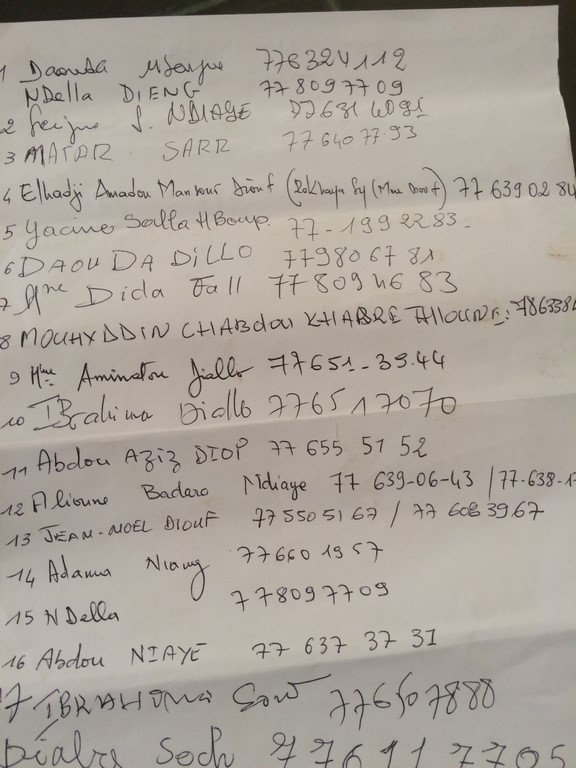 1 Daouda Mbengue 776324112
NDella DIENG 778097709
2 Serigne S. NDIAYE 77631 4091
3 MATAR SARR 77 640 77.93
4 Elhadji Amadou Mansour Diouf (Rokhaya Sy (Mme Diouf) 77 639 02 84
5 Yacine Salla MBoup. 77-199 22 83-
6 DAOUDA DiLLO 77980 67 81
7 Mme Dida Fall 77 809 46 83
8 MOUHYDDIN CHABDOU KHABRE Allioune: 786338
9 Mme Aminatou Diallo 77651-39.44
10 IBrahima Diallo 776517070
11 Abdou AZiZ DIOP 77 655 51 52
12 Alioune Badara Ndiaye 77 639-06-43 /77-638-1
13 JEAN-NOEL DIOUF 77 550 51 67 / 77 608 3967
14 Adama Niang 77660 1957
15 NDella 778097709
16 Abdou NIAYE 77 637 37 31
17 IBRAHIMA Sow 776507888
Dialre Seck 776117705